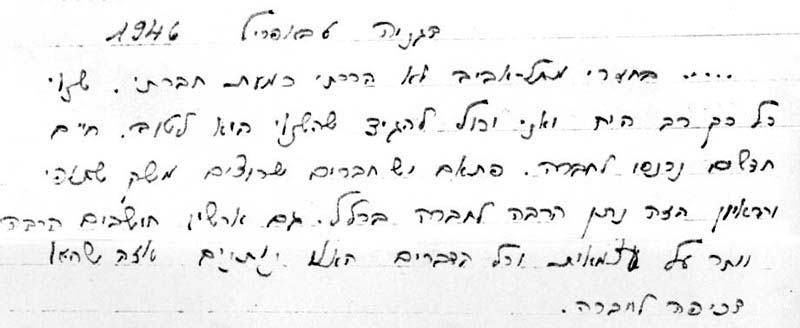 דגניה 6 באפריל 1946
..... בחזרי מתל-אביב לא הכרתי כמעט חברתי. שנוי
כל כך רב היה ואני יכול להגיד שהשנוי הוא לטוב. חיים
חדשים נכנסו לחברה. פתאם יש חברים שרוצים משק שתופי
והראיון הזה נתן הרבה לחברה בכלל. גם אנשים חושבים הרבה
יותר על עצמאות וכל הדברים האלו נותנים איזה שהוא
דחיפה לחברה.